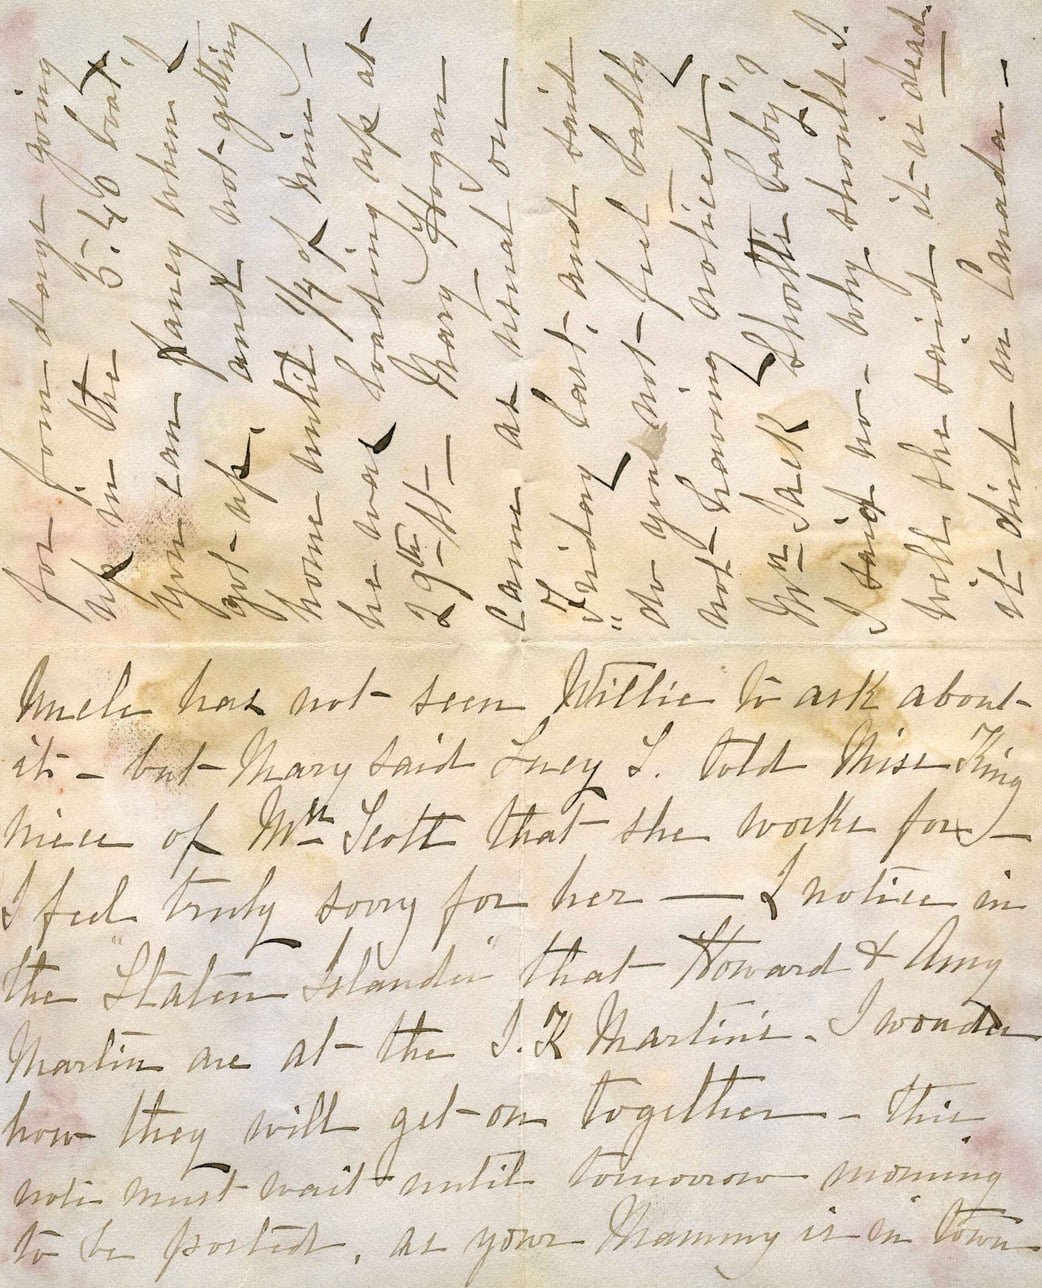 for four days going
up in the 5.40 boat,
you can fancy when I
got up. and not getting
home until 1/4 of nine —
he was loading up at
29th St — Mary Hogan
came as usual on —
Friday last, and said
"do you not feel badly
not having noticed
Mr. Jack Shotts baby"?
I said no — why should I.
well she said it is dead.
it died in Canada —
Uncle has not seen Willie to ask about
it — but Mary said Lucy S. told Miss King
niece of Mrs Scott that she works for —
I feel truly sorry for her — I notice in
the "Staten Islander" that Howard & Amy
Martin are at the J. K Martin's. I wonder
how they will get on together — this
note must wait until tomorrow morning
to be posted, as your Mammy is in town